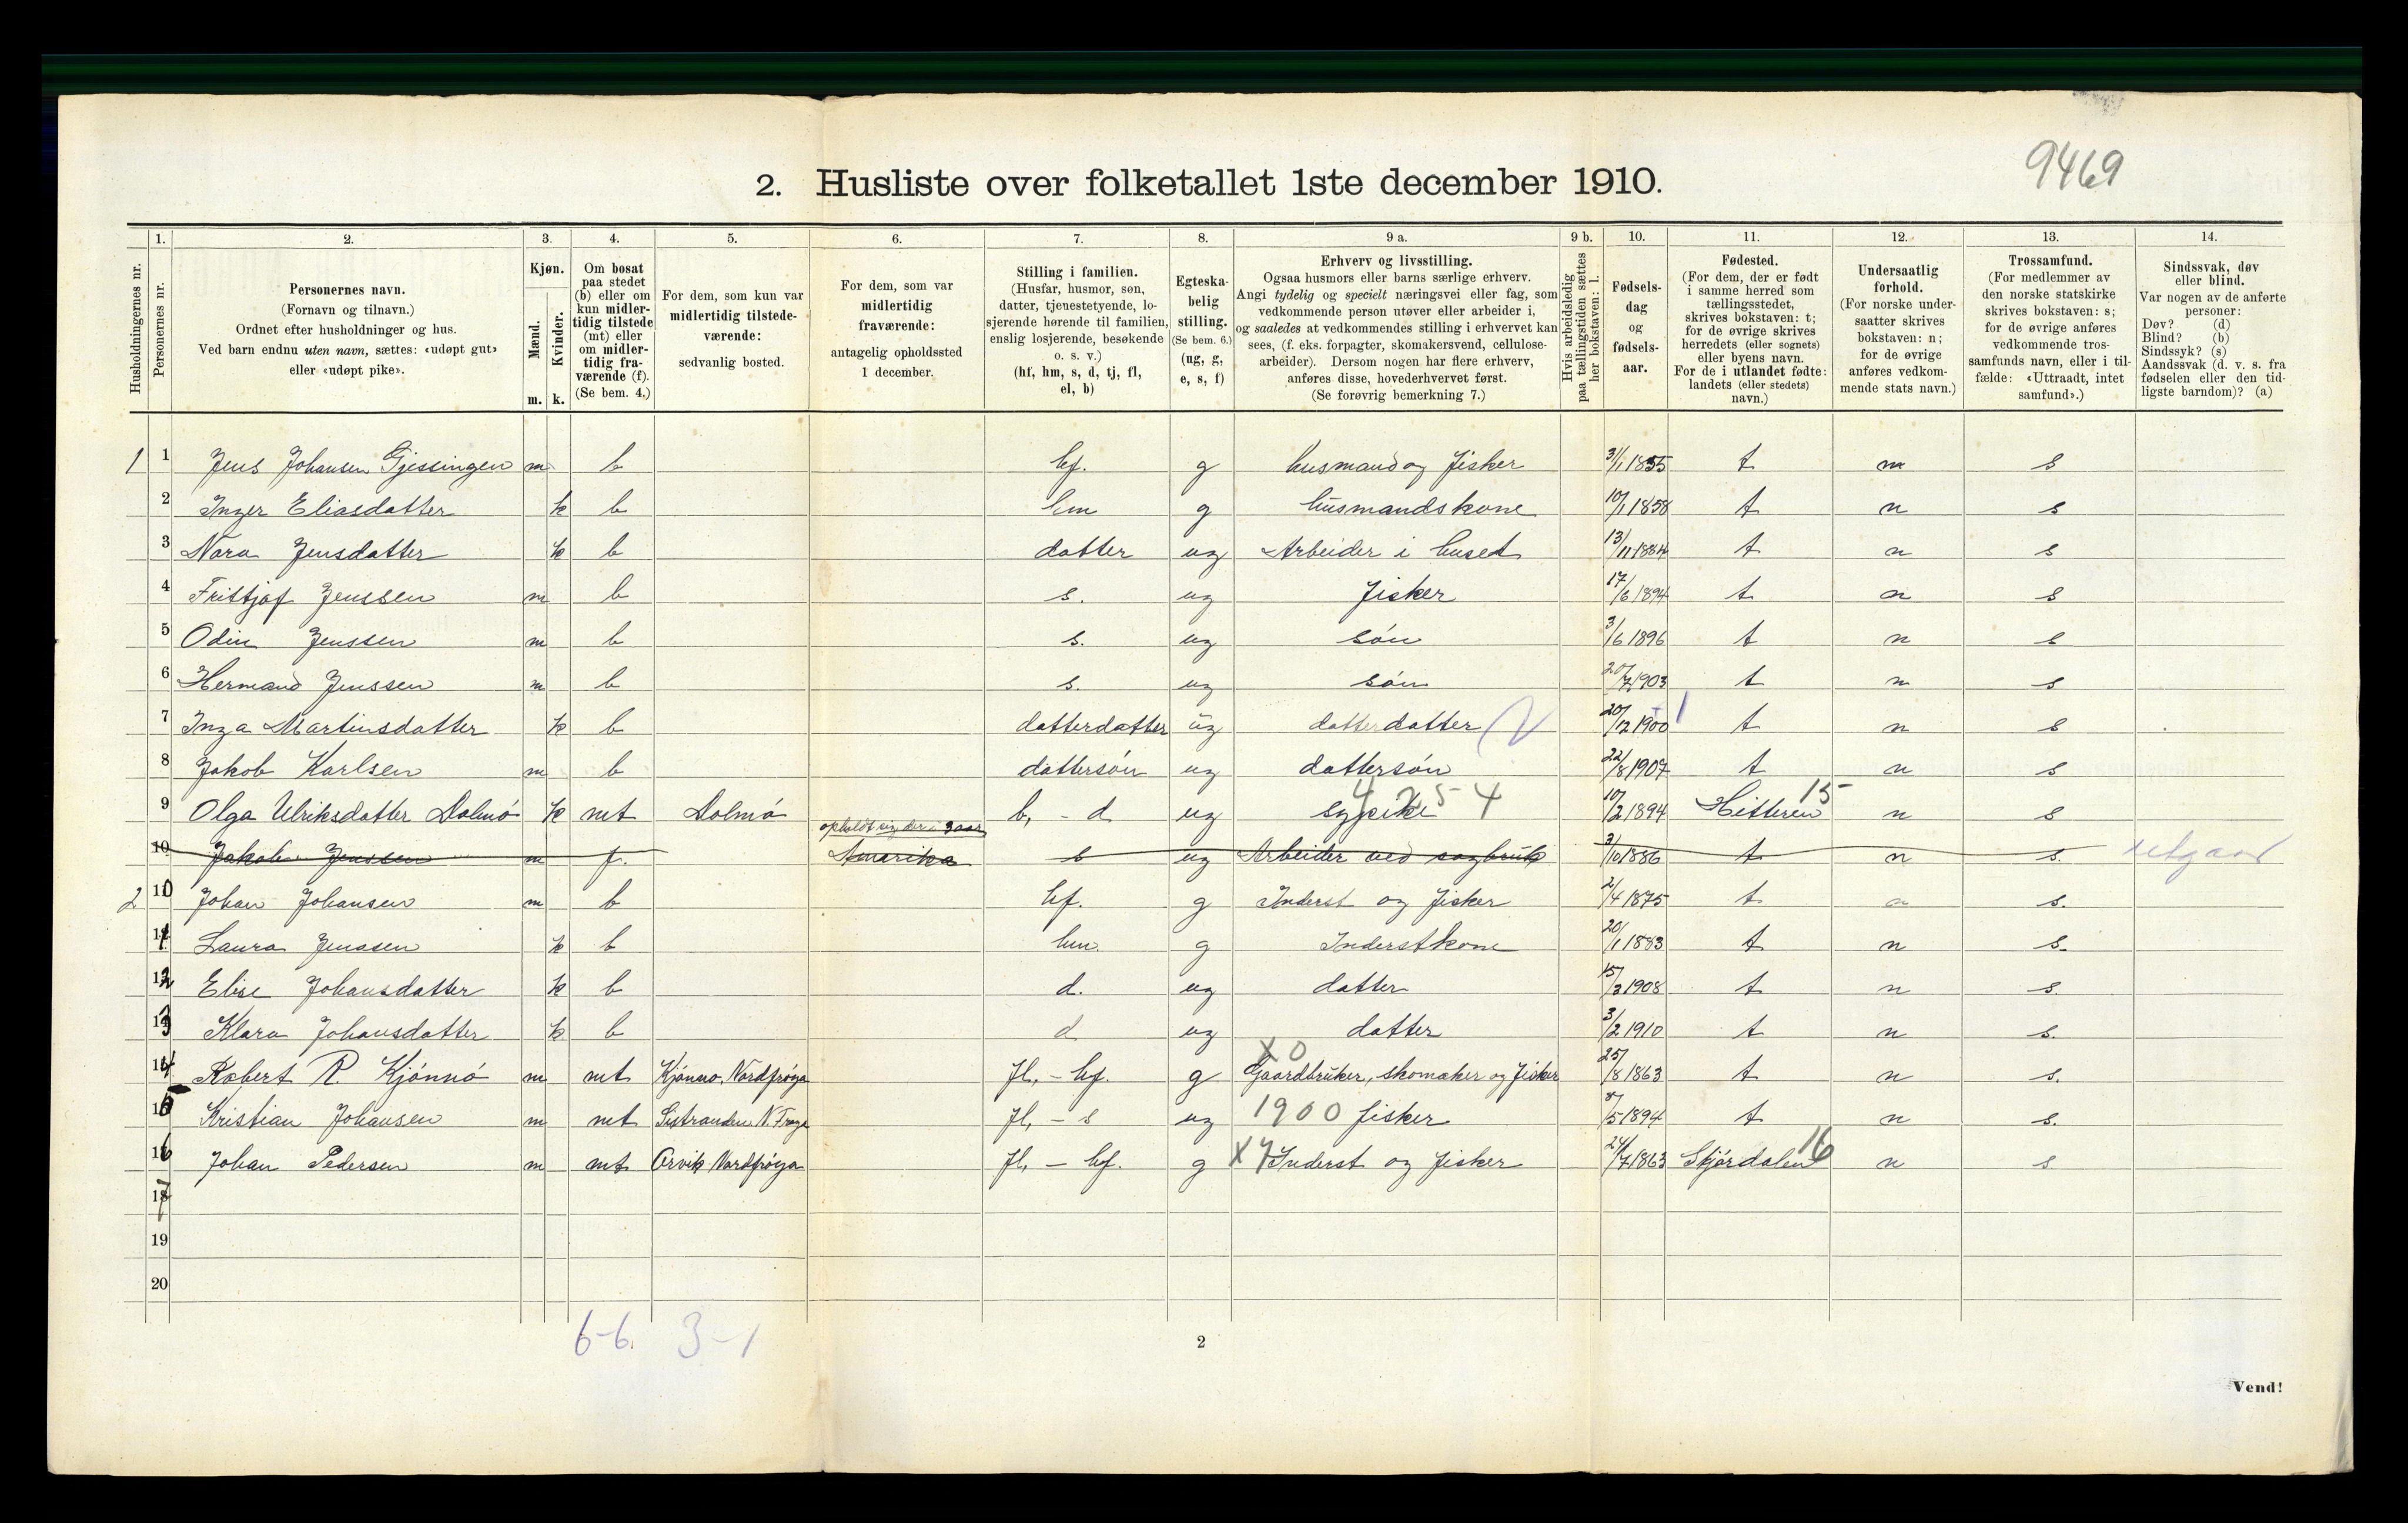 9469
2. Husliste over folketallet 1ste december 1910.
1. 2. 3. 4. 5. 6. 7. 8. 9 a. 9 b. 10. 11. 12. 13. 14.
Husholdningernes nr.
Personernes nr.
Personernes navn.
(Fornavn og tilnavn.)
Ordnet efter husholdninger og hus.
Ved barn endnu uten navn, sættes: «udøpt gut»
eller «udøpt pike».
Kjøn.
Mænd.
Kvinder.
m. k.
Om bosat
paa stedet
(b) eller om
kun midler-
tidig tilstede
(mt) eller
om midler-
tidig fra-
værende (f).
(Se bem. 4.)
For dem, som kun var
midlertidig tilstede-
værende:
sedvanlig bosted.
For dem, som var
midlertidig
fraværende:
antagelig opholdssted
1 december.
Stilling i familien.
(Husfar, husmor, søn,
datter, tjenestetyende, lo-
sjerende hørende til familien,
enslig losjerende, besøkende
o. s. v.)
(hf, hm, s, d, tj, fl,
el, b)
Egteska-
belig
stilling.
(Se bem. 6.)
(ug, g,
e, s, f)
Erhverv og livsstilling.
Ogsaa husmors eller barns særlige erhverv.
Angi tydelig og specielt næringsvei eller fag, som
vedkommende person utøver eller arbeider i,
og saaledes at vedkommendes stilling i erhvervet kan
sees, (f. eks. forpagter, skomakersvend, cellulose-
arbeider). Dersom nogen har flere erhverv,
anføres disse, hovederhvervet først.
(Se forøvrig bemerkning 7.)
Hvis arbeidsledig
paa tællingstiden sættes
her bokstaven: l.
Fødsels-
dag
og
fødsels-
aar.
Fødested.
(For dem, der er født
i samme herred som
tællingsstedet,
skrives bokstaven: t;
for de øvrige skrives
herredets (eller sognets)
eller byens navn.
For de i utlandet fødte:
landets (eller stedets)
navn.)
Undersaatlig
forhold.
(For norske under-
saatter skrives
bokstaven: n;
for de øvrige
anføres vedkom-
mende stats navn.)
Trossamfund.
(For medlemmer av
den norske statskirke
skrives bokstaven: s;
for de øvrige anføres
vedkommende tros-
samfunds navn, eller i til-
fælde: «Uttraadt, intet
samfund».)
Sindssvak, døv
eller blind.
Var nogen av de anførte
personer:
Døv? (d)
Blind? (b)
Sindssyk? (s)
Aandssvak (d. v. s. fra
fødselen eller den tid-
ligste barndom)? (a)
1 1 Jens Johansen Gjessingen m b hf. g husmand og fisker 31/1 1855 t n s
2 Inger Eliasdatter k b hm g husmandskone 10/1 1858 t n s
3 Nora Jensdatter k b datter ug Arbeider i huset 13/11 1884 t n s
4 Fritjof Jenssen m b s. ug fisker 17/6 1894 t n s
5 Odin Jenssen m b s. ug søn 3/6 1896 t n s
6 Hermand Jenssen m b s. ug søn 20/7 1903 t n s
7 Inga Martinsdatter k b datterdatter ug datterdatter 20/12 1900 1 t n s
8 Jakob Karlsen m b dattersøn ug dattersøn 22/8 1907 t n s
9 Olga Ulriksdatter Dolmø k mt Dolmø b, - d ug sypike 4 10/2 1894 Hitteren 15 n s
opholdt sig der i 3 aar
10 Jakob Jenssen m f. Amerika s ug Arbeider ved sagbruk 3/10 1886 t n s. utgaar
2 10 Johan Johansen m b hf. g Inderst og fisker 2/4 1875 t n s.
11 Laura Jenssen k b hm. g Inderstkone 20/1 1883 t n s.
12 Elise Johansdatter k b d. ug datter 15/3 1908 t n s.
13 Klara Johansdatter k b d ug datter 3/2 1910 t n s.
X0
14 Robert R. Kjønnø m mt Kjønnø, Nordfrøya fl, - hf. g Gaardbruker, skomaker og fisker 25/8 1863 t n s.
15 Kristian Johansen m mt Sistranden N. Frøya fl, - s ug 1900 fisker 8/5 1894 t n s.
16 Johan Pedersen m mt Ørvik Nordfrøya fl, - hf. g X7 Inderst og fisker 24/7 1863 Skjørdalen 16 n s
17
19
20
6-6. 3-1
2
Vend!